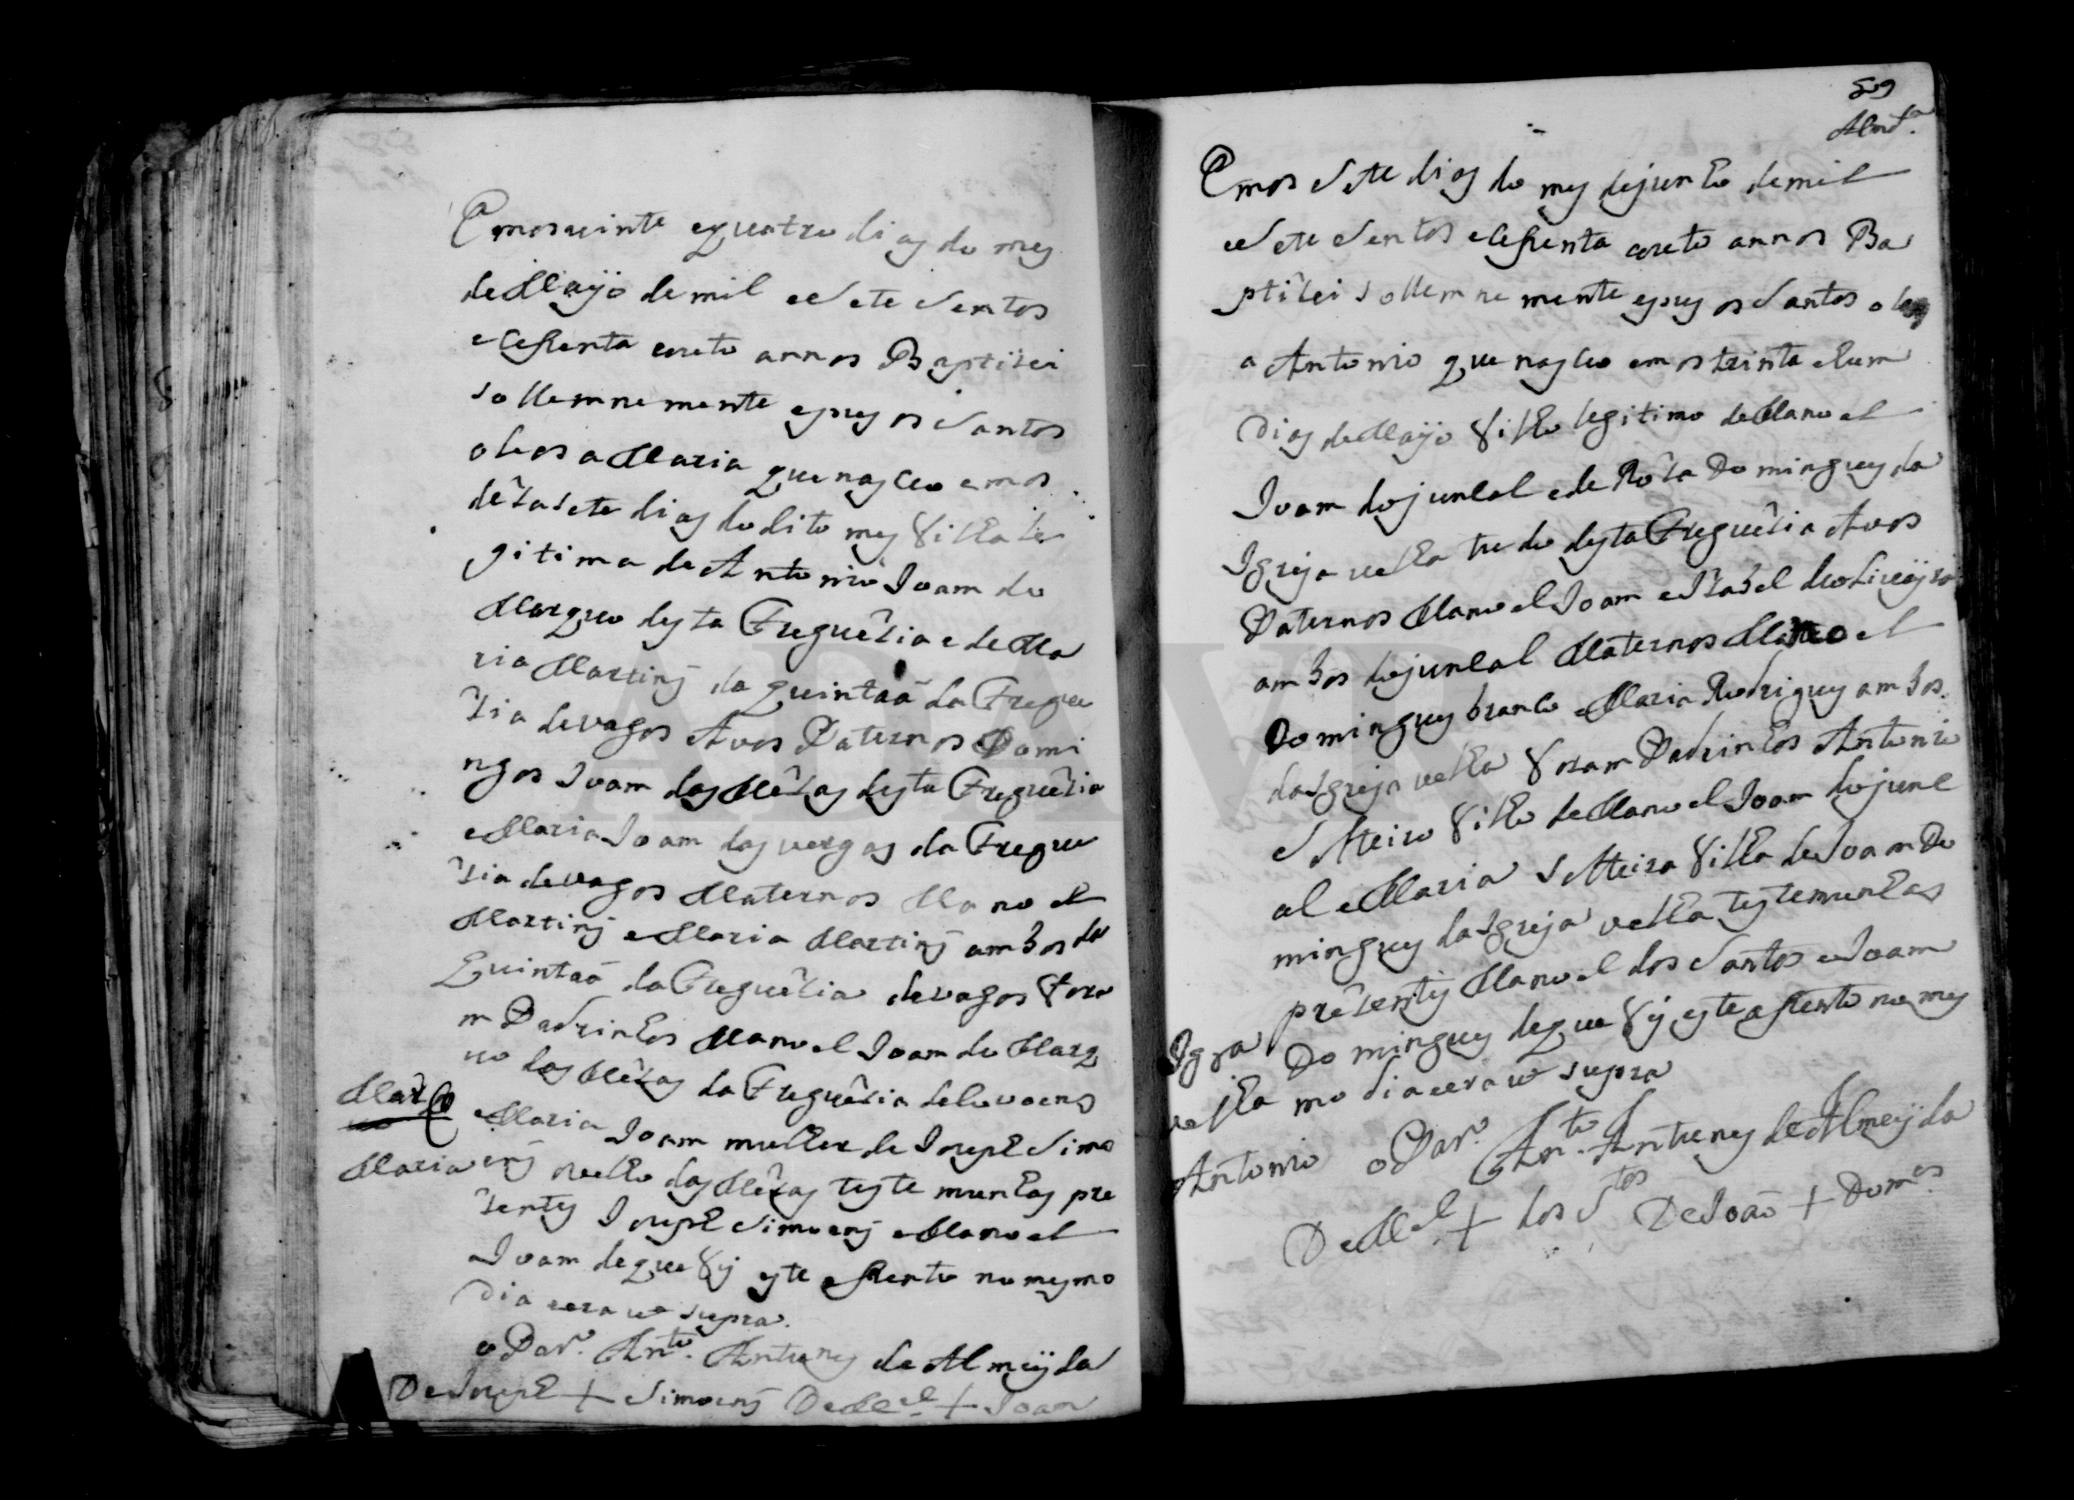 Em os vinte e quatro dias do mes
de Mayo de mil e sete sentos
e cessenta e oito annos Baptizei
sollemnemente e pus os santos
oleos a Maria que nasceo em os
dezasete dias do dito mes filha le
gitima de Antonio Joam do
Marquo desta Freguezia e de Ma
ria Martins da quintaã da Fregue
zia de vagos Avos Paternos Domi
ngos Joam das Mezas desta Freguezia
e Maria Joam das vergas da Fregue
zia de vagos Maternos Manoel
Martins e Maria Martins ambos da
Quintaã da Freguezia de vagos Fora
m Padrinhos Manoel Joam do Marq
uo das Mezas da Freguezia de
e Maria Joam mulher de Joseph Simo
ens velho das Mezas testemunhas pre
zentes Joseph Simoens e Manoel
Joam de que fis este assento no mesmo
dia e era ut supra.
o Par.º Ant.º Antunes de Almeyda
De Joseph + Simoens De M.el + Joam
Maria
59
Almd.ª
Em os sete dias do mes de junho de mil
e sete sentos e cessenta e oito annos Ba
ptizei sollemnemente e pus os santos oleos
a Antonio que nasceo em os trinta e hum
dias de Mayo filho legitimo de Manoel
Joam do juncal e de Roza Domingues da
Igreja velha tudo desta Freguezia Avos
Paternos Manoel Joam e Izabel de oliveyra
ambos do juncal Maternos Manoel
Domingues branco e Maria Rodrigues ambos
da Igreja velha foram Padrinhos Antonio
solteiro filho de Manoel Joam do junc
al e Maria solteira filha de Joam Do
mingues da Igreja velha testemunhas
prezentes Manoel dos Santos e Joam
Domingues de que fis este assento no mes
mo dia e era ut supra
Igra
velha
Antonio
o Par.º Ant.º Antunes de Almeyda
De M.el + dos S.tos De João + Dom.es